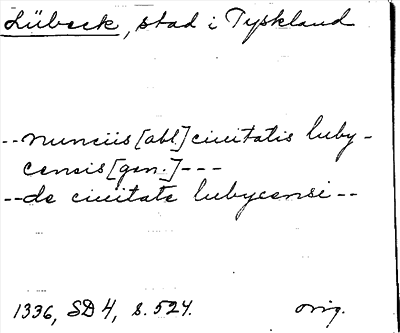 Lübeck, stad i Tyskland
--nunciis [abl.] ciuitatis luby-
censis [gen.]---
--de ciuitate lubycensi--
1336, SD 4, s. 524. orig.